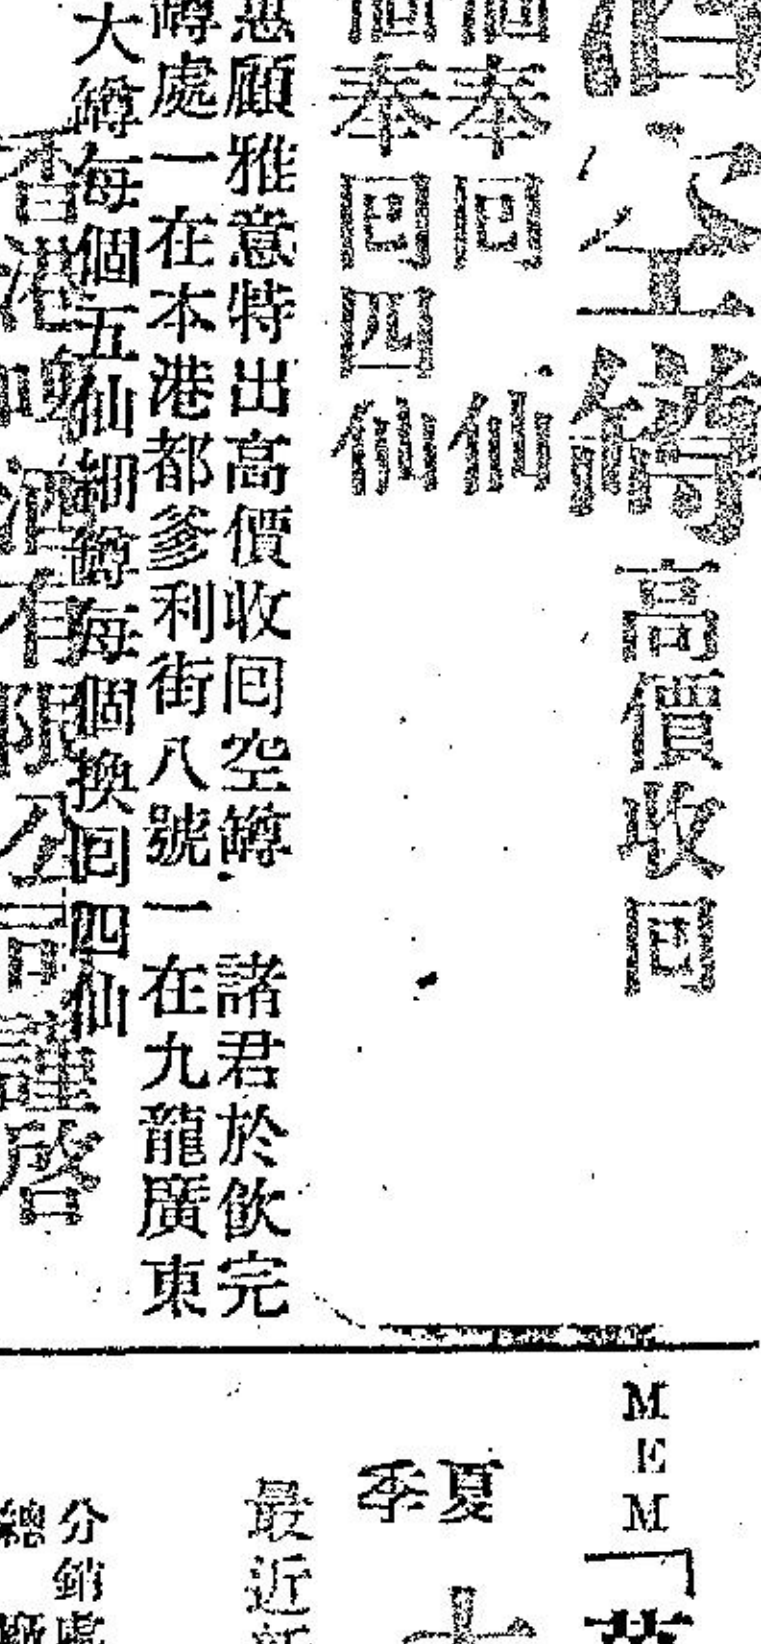 酒空罇高價收囘
個奉囘 仙
個奉囘四仙
惠顧雅意特出高價收囘空罇 諸君於飲完
罇處一在本港都爹利街八號一在九龍廣東
大罇每個五仙細罇每個換囘四仙
香港啤酒有限公司謹啓
MEM
夏季
最近
分銷處
總